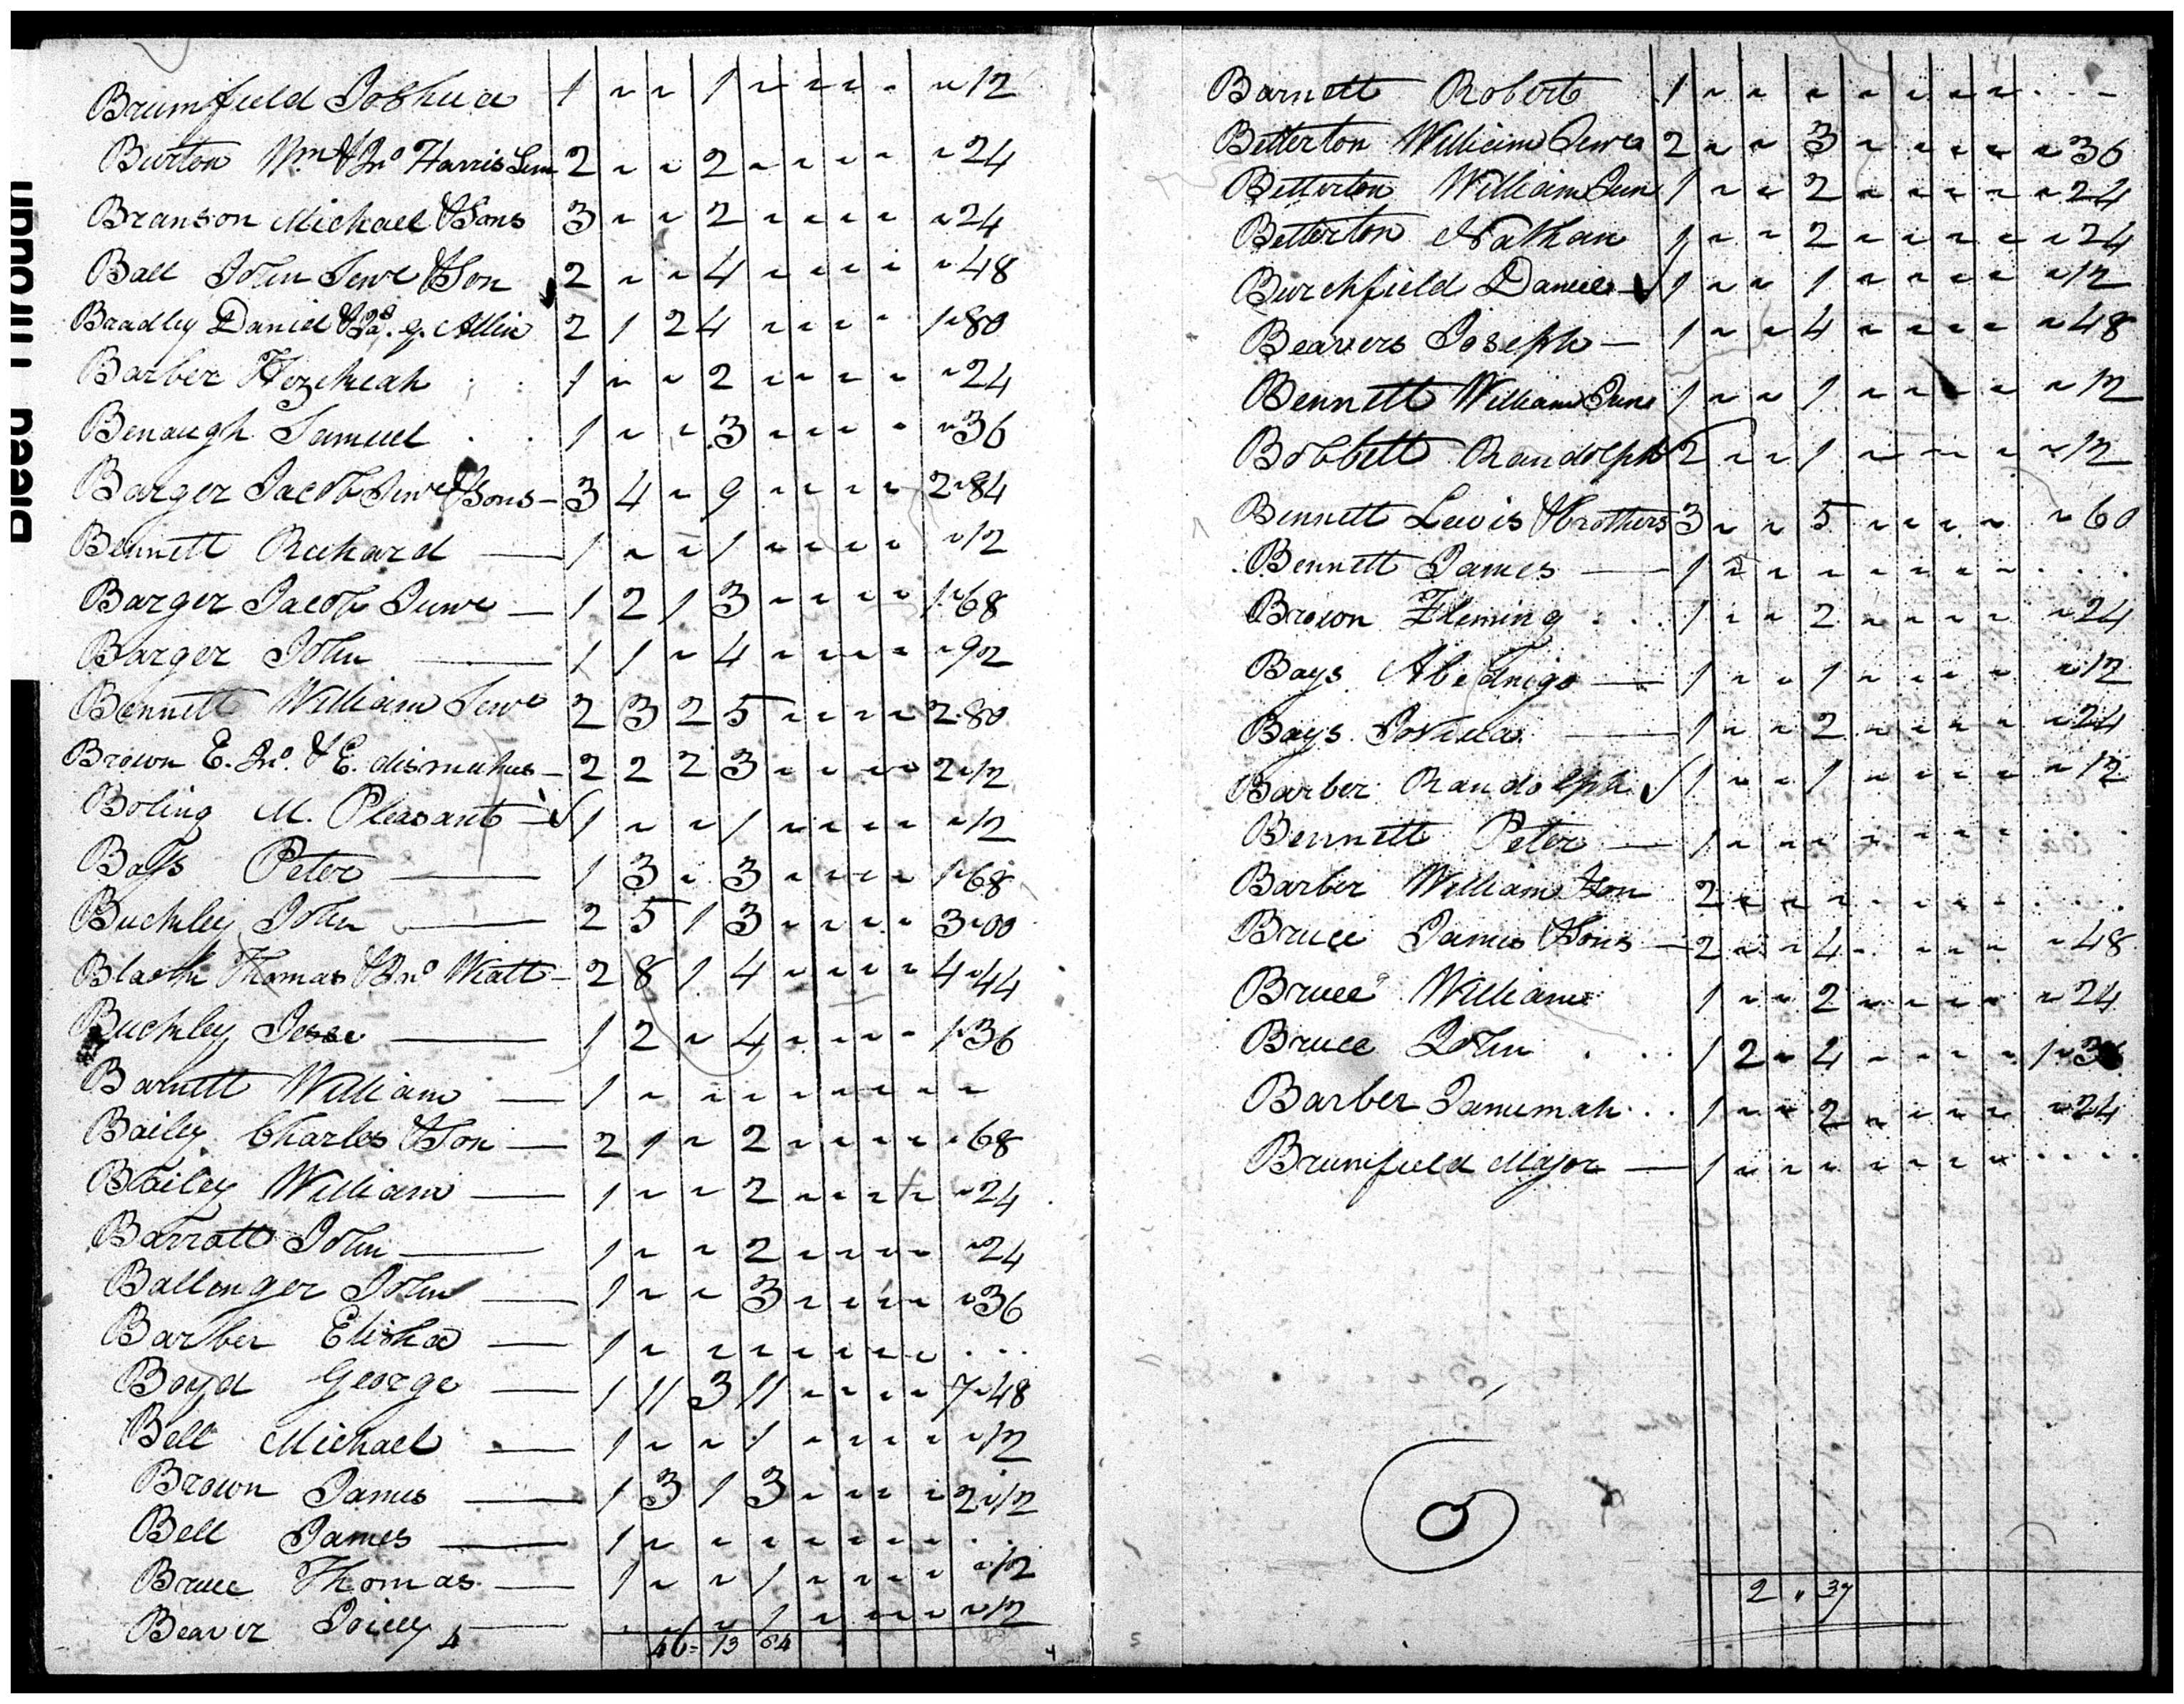 Brumfield Joshua 1 " " 1 " " " " " 12
Burton Wm & Jno Harris Sen 2 " " 2 " " " " " 24
Branson Michael & Sons 3 " " 2 " " " " " 24
Ball John Senr & Son 2 " " 4 " " " " " 48
Bradley Daniel & g. Allin 2 1 2 4 " " " " 1 " 80
Barber Hezekeah 1 " " 2 " " " " " 24
Benaugh Samuel 1 " " 3 " " " " " 36
Barger Jacob Senr & Sons 3 4 " 9 " " " " 2 " 84
Bennett Richard 1 " " 1 " " " " " 12
Barger Jacob Junr 1 2 1 3 " " " " 1 " 68
Barger John 1 1 " 4 " " " " " 92
Bennett William Senr 2 3 2 5 " " " " 2 " 80
Brown E. Jno. & E. dismukes 2 2 2 3 " " " " 2 " 12
Boling M. Pleasant 1 " " 1 " " " " " 12
Bays Peter 1 3 " 3 " " " " 1 " 68
Buckley John 2 5 1 3 " " " " 3 " 00
Thomas & Jno Wiatt 2 8 1 4 " " " " 4 " 44
Buckley Jesse 1 2 " 4 " " " " 1 " 36
Barnett William 1 " " " " " " " "
Bailey Charles & Son 2 1 " 2 " " " " " 68
Bailey William 1 " " 2 " " " " " 24
Barratt John 1 " " 2 " " " " " 24
Ballenger John 1 " " 3 " " " " " 36
Barber Elisha 1 " " " " " " " . . .
Boyd George 1 11 3 11 " " " " 7 " 48
Bell Michael 1 " " 1 " " " " " 12
Brown James 1 3 1 3 " " " " 2 " 12
Bell James 1 " " " " " " " . .
Bruce Thomas 1 " " 1 " " " " " 12
Beaver " " " 1 " " " " " 12
46 = 13 64
4
Barnett Robert 1 " " " " " " " . . -
Betterton William Senr 2 " " 3 " " " " " 36
Betterton William Jun 1 " " 2 " " " " " 24
Betterton Nathan 1 " " 2 " " " " " 24
Burchfield Daniel 1 " " 1 " " " " " 12
Beavers Joseph 1 " " 4 " " " " " 48
Bennett William Junr 1 " " 1 " " " " " 12
Bobbett Randolph 2 " " 1 " " " " " 12
Bennett Lewis & brothers 3 " " 5 " " " " " 60
Bennett James 1 " " " " " " " . . .
Brown Fleming 1 " " 2 " " " " " 24
Bays Abednigo 1 " " 1 " " " " " 12
Bays Joshua 1 " " 2 " " " " " 24
Barber Randolph 1 " " 1 " " " " " 12
Bennett Peter 1 " " " " " " " . . .
Barber William & Son 2 " " " " " " " . . .
Bruce James & Sons 2 " " 4 " " " " " 48
Bruce William 1 " " 2 " " " " " 24
Bruce John 1 2 " 4 " " " " 1 " 36
Barber 1 " " 2 " " " " " 24
Brumfield Major 1 " " " " " " " . . .
2 " 37
5